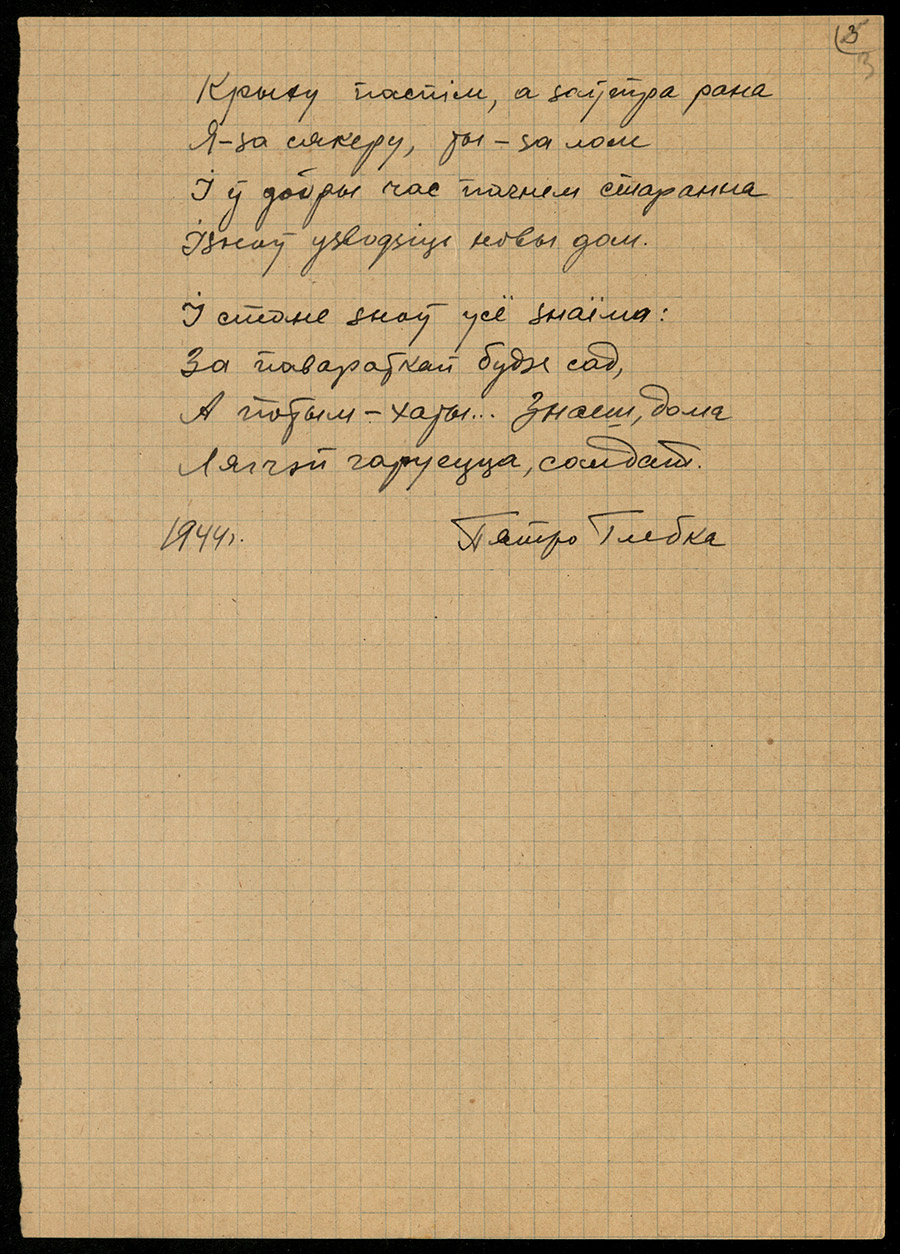 3
3
Крыху паспім, а заўтра рана
Я – за сякеру, ты – за лом
І ў добры час пачнем старанна
Ізноў узводзіць новы дом.
І стане зноў усё знаёма:
За павароткай будзе сад,
А потым – хаты... Знаеш, дома
Лягчэй гаруецца, солдат.
1944 г.
Пятро Глебка